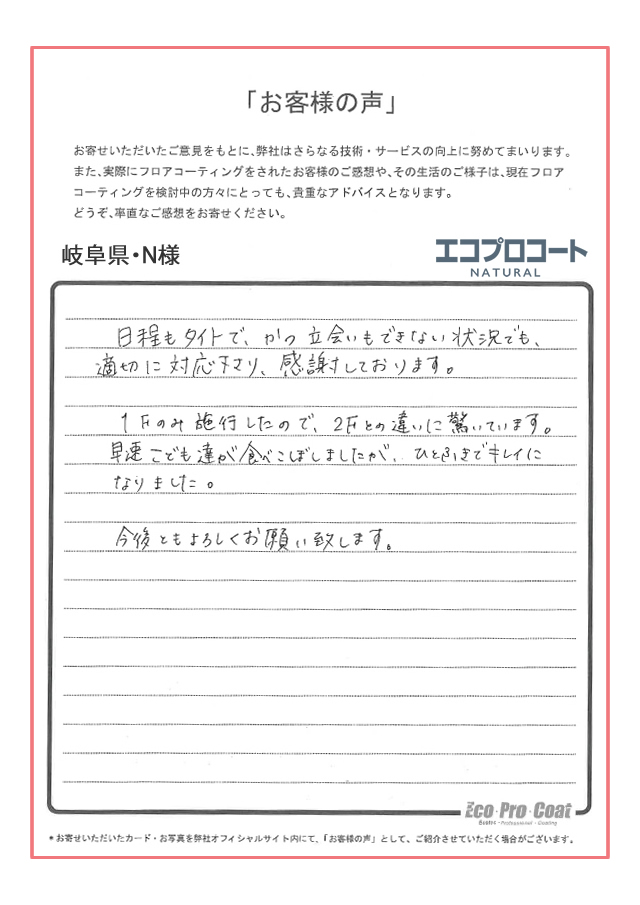 「お客様の声」
お寄せいただいたご意見をもとに、弊社はさらなる技術・サービスの向上に努めてまいります。
また、実際にフロアコーティングをされたお客様のご感想や、その生活のご様子は、現在フロア
コーティングを検討中の方々にとっても、貴重なアドバイスとなります。
どうぞ、率直なご感想をお寄せください。
岐阜県・N様
エコプロコート
NATURAL
日程もタイトで、かつ立会いもできない状況でも、
適切に対応下さり、感謝しております。
1Fのみ施行したので、2Fとの違いに驚いています。
早速こども達が食べこぼしましたが、ひとふきでキレイに
なりました。
今後ともよろしくお願い致します。
Eco・Pro・Coat
Ecoloc - Professional - Coating
*お寄せいただいたカード・お写真を弊社オフィシャルサイト内にて、「お客様の声」として、ご紹介させていただく場合がございます。